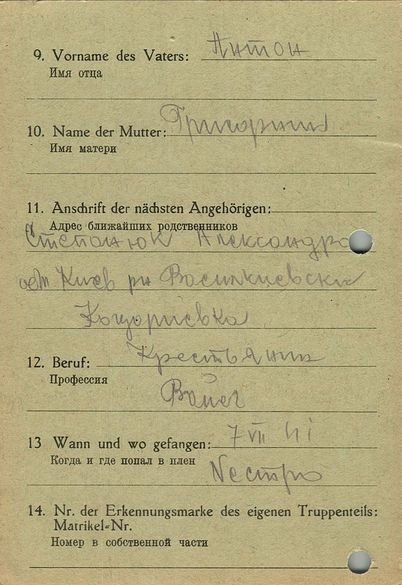 9. Vorname des Vaters: Антон
Имя отца
10. Name der Mutter: Григорина
Имя матери
11. Anschrift der nächsten Angehörigen:
Адрес ближайших родственников
Степанюк Александра
Киев рн Василкиевски
12. Beruf: Крестьянин
Профессия
Bauer
13 Wann und wo gefangen: 7 VII 41
Когда и где попал в плен
14. Nr. der Erkennungsmarke des eigenen Truppenteils:
Matrikel-Nr.
Номер в собственной части